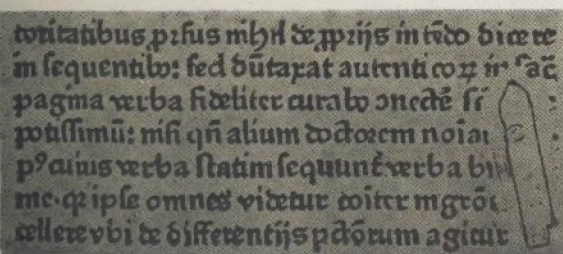 toritatibus prſus nihil de ꝓprijs intẽdo dicere
in ſequentibꝰ: ſed dũtaxat autenticoꝝ
pagina verba fideliter curabo ↄnectẽ
potiſſimũ: niſi qñ alium doctorem
pꝰ cuius verba ſtatim ſequunt̃ verba
me. qꝛ ipſe omnes videtur
cellere vbi de differentijs pctõrum agitur